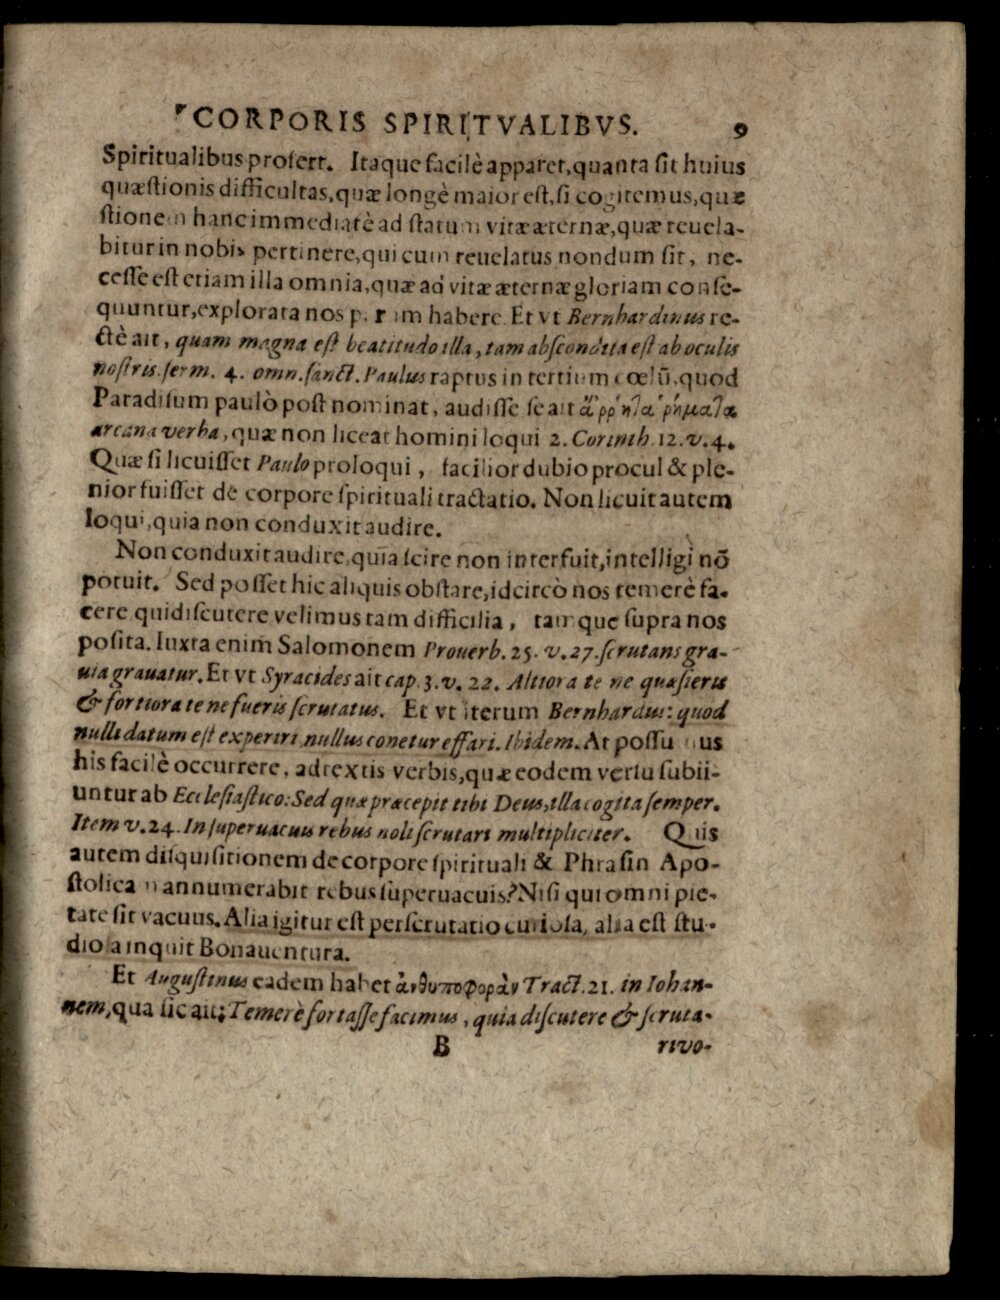 CORPORIS SPIRITVALIBVS. 9
Spiritualibus profert. Itaque facilè apparet, quanta sit huius
quæstionis difficultas, quæ longè maior est, si cogitemus, quæ
stionem hanc immediatè ad statum vitæ æternæ, quæ reuela-
bitur in nobis pertinere, qui cum reuelatus nondum sit, ne-
cesse est etiam illa omnia, quæ ad vitæ æternæ gloriam conse-
quuntur, explorata nos habere. Et vt Bernhardinus re-
ctè ait, quam magna est beatitudo illa, tam abscondita est ab oculis
nostris. serm. 4. omn. sanct. Paulus raptus in tertium cœlū, quod
Paradisum paulò post nominat, audisse se ait ἄῤῥητα ῥήματα
arcana verba, quæ non liceat homini loqui 2. Corinth. 12. v. 4.
Quæ si licuisset Paulo proloqui, facilior dubio procul & ple-
nior fuisset de corpore spirituali tractatio. Non licuit autem
loqui, quia non conduxit audire.
Non conduxit audire, quia scire non interfuit, intelligi nō
potuit. Sed posset hic aliquis obstare, idcircò nos temerè fa-
cere qui discutere velimus tam difficilia, tamque supra nos
posita. Iuxta enim Salomonem Prouerb. 25. v. 27. scrutans gra-
uia grauatur. Et vt Syracides ait cap. 3. v. 22. Altiora te ne quæsieris
& fortiora te ne fueris scrutatus. Et vt iterum Bernhardus: quod
nulli datum est experiri, nullus conetur effari. Ibidem. At possumus
his facilè occurrere, ad textis verbis, quæ eodem versu subii-
untur ab Ecclesiastico: Sed quæ præcepit tibi Deus, illa cogita semper.
Item v. 24. In superuacuis rebus noli scrutari multipliciter. Quis
autem disquisitionem de corpore spirituali & Phrasin Apo-
stolicam annumerabit rebus superuacuis? Nisi qui omni pie-
tate sit vacuus. Alia igitur est perscrutatio curiosa, alia est stu-
diosa inquit Bonauentura.
Et Augustinus eadem habet ἀνθυποφορὰν Tract. 21. in Iohan-
nem, qua sic ait; Temerè fortasse facimus, quia discutere & scruta-
B rivo-